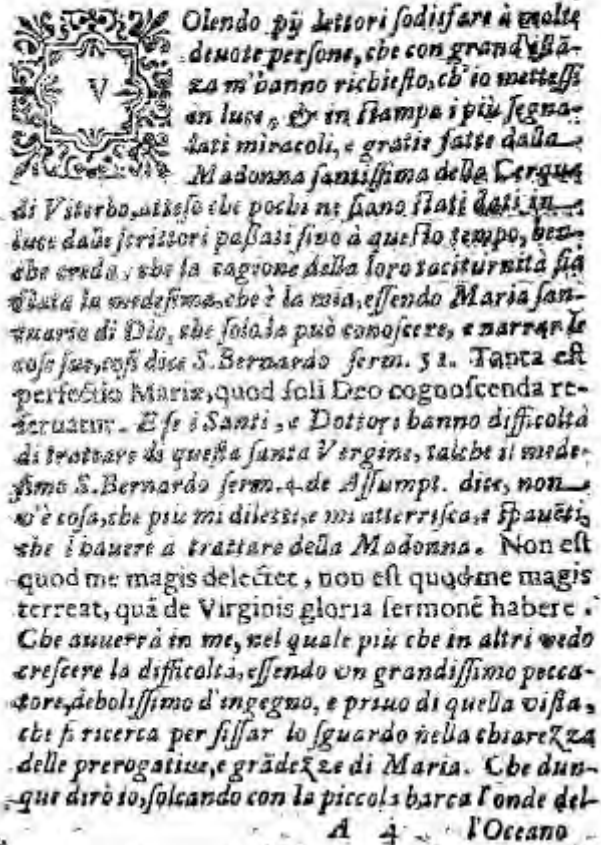 VOlendo pÿ lettori sodisfare à molte
deuote persone, che con grand'istã-
za m'hanno richiesto, ch'io mettessi
in luce, & in stampa i più segna-
lati miracoli, e gratie fatte dalla
Madonna santissima della Cerqua
di Viterbo, atteso che pochi ne siano stati dati in
luce dalli scrittori passati sino à questo tempo, ben-
che credo, che la cagione della loro taciturnità sia
stata la medesima, che è la mia, essendo Maria san-
tuario di Dio, che solo la può conoscere, e narrar le
cose sue, così dice S. Bernardo serm. 51. Tanta est
perfectio Mariæ, quod soli Deo cognoscenda re-
seruatur. E se i Santi, e Dottori hanno difficoltà
di trattare di questa santa Vergine, talche il mede-
simo S. Bernardo serm. 4. de Assumpt. dice, non
v'è cosa, che più mi diletti, e mi atterrisca, e spauẽti,
che l'hauere a trattare della Madonna. Non est
quod me magis delectet, non est quod me magis
terreat, quã de Virginis gloria sermonẽ habere.
Che auuerrà in me, nel quale più che in altri vedo
crescere la difficoltà, essendo vn grandissimo pecca-
tore, debolissimo d'ingegno, e priuo di quella vista,
che si ricerca per fissar lo sguardo nella chiarezza
delle prerogatiue, e grãdezze di Maria. Che dun-
que dirò io, solcando con la piccola barca l'onde del-
A 4 l'Oceano